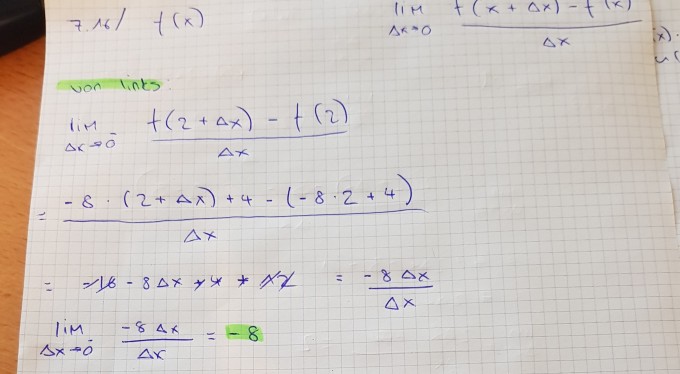 7.16/ f(x) lim Δx→0 f(x + Δx) - f(x) / Δx
von links:
lim Δx→0⁻ f(2 + Δx) - f(2) / Δx
= -8 · (2 + Δx) + 4 - (-8·2 + 4) / Δx
= -16 - 8Δx + 4 + 12 = -8Δx / Δx
lim Δx→0⁻ -8Δx / Δx = -8